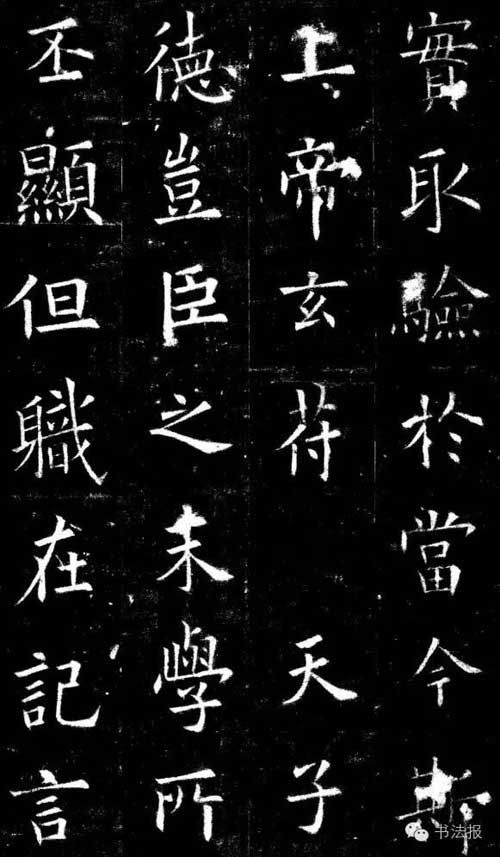 實取驗於當今斯
上帝玄符 天子
德豈臣之末學所
丕顯但職在記言
书法报